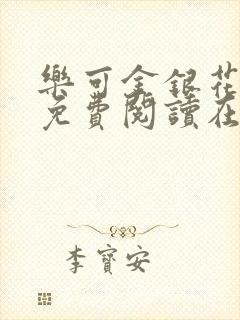 樂可金銀花
免費閱讀在
李寶安